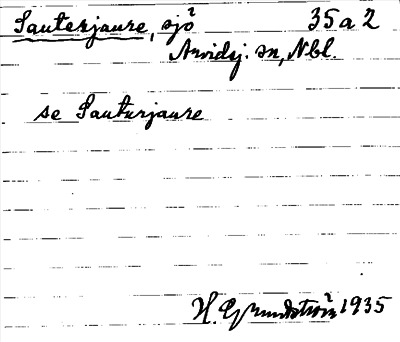 Sauterjaure, sjö 35 a 2
Arvidsj. sn, Nbl.
se Sauturjaure
H. Grundström 1935